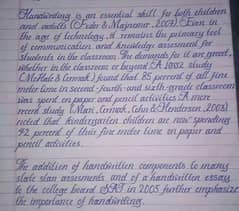 Handwriting is an essential skill for both children
and adults (Feder & Majnemer, 2007). Even in
the age of technology, it remains the primary tool
of communication and knowledge assessment for
students in the classroom. The demands for it are great,
whether in the classroom or beyond. A 1992 study
(McHale & Cermak) found that 85 percent of all fine
motor time in second- fourth- and sixth-grade classrooms
was spent on paper and pencil activities. A more
recent study (Marr, Cermak, Cohn & Henderson, 2003)
noted that kindergarten children are now spending
42 percent of their fine motor time on paper and
pencil activities.
The addition of handwritten components to many
state slan assessments and of a handwritten essay
to the college board SAT in 2005 further emphasize
the importance of handwriting.